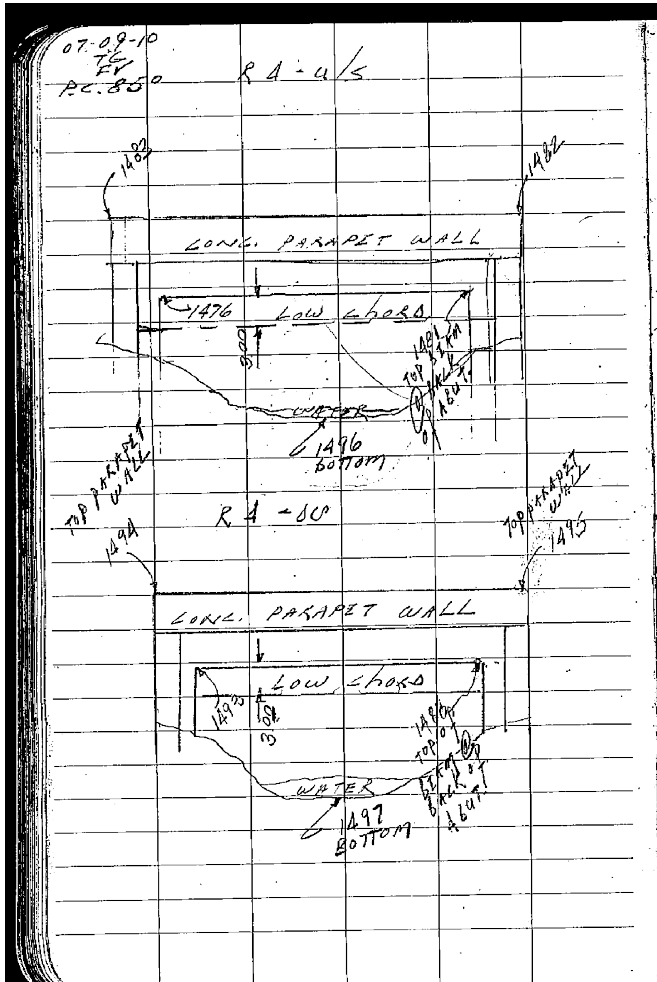 07-09-10
TG
FV
P.C. 850
R4-u/s
1483
1482
CONC. PARAPET WALL
1476
LOW CHORD
3.00
TOP BERM
@ BACK
OF ABUT.
WATER
1496
BOTTOM
TOP PARAPET
WALL
1494
R4-DS
TOP PARAPET
WALL
1495
CONC. PARAPET WALL
LOW CHORD
1493
3.00
TOP OF
BERM @
BACK OF
ABUT.
WATER
1497
BOTTOM